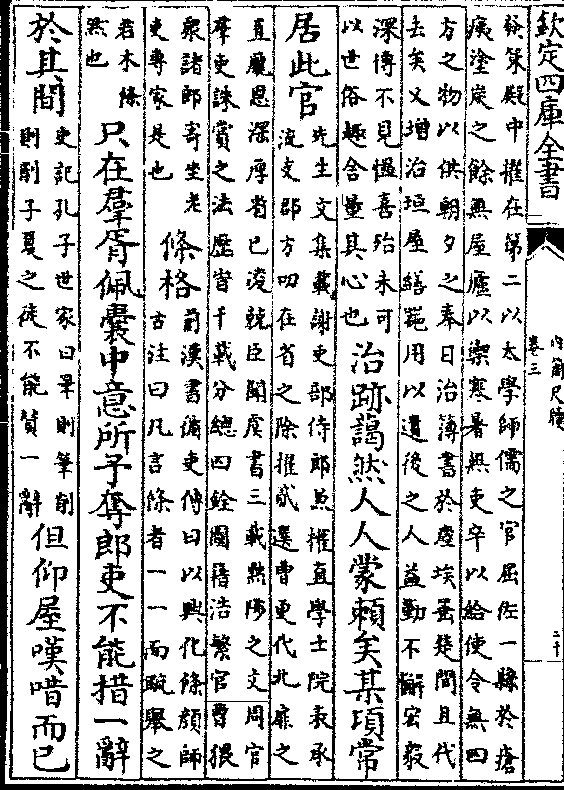 欽定四庫全書
內簡尺牘
卷三
二十
發策殿中擢在第二以太學師儒之官屈佐一縣於瘡
痍塗炭之餘無屋廬以禦寒暑無吏卒以給使令無四
方之物以供朝夕之奉日治簿書於塵埃蓁楚間且代
去矣又增治垣屋繕葺器用以遺後之人益勤不懈宏毅
深博不見愠喜殆未可
以世俗趣舍量其心也
治跡藹然人人蒙賴矣某頃常
居此官
先生文集載謝吏部侍郎兼權直學士院表承
流支郡方叨在省之除擢貳選曹更代北扉之
直寵恩深厚省已凌兢臣聞虞書三載黜陟之文周官
羣吏誅賞之法歷皆千載分總四銓圖籍浩繁官曹猥
衆諸郎寄坐老
吏專家是也
條格
前漢書循吏傳曰以興化條顔師
古注曰凡言條者一一而疏舉之
若木條
然也
只在羣胥佩囊中意所予奪郎吏不能措一辭
於其間
史記孔子世家曰筆則筆削
則削子夏之徒不能贊一辭
但仰屋嘆喑而已